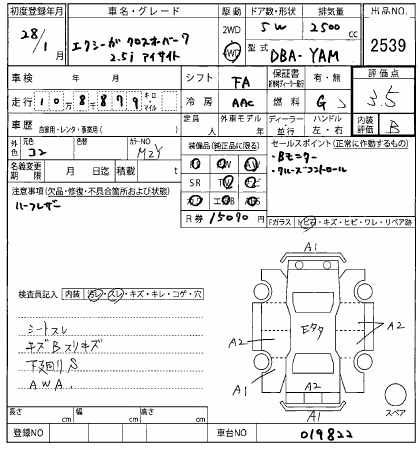 初度登録年月 車名・グレード 駆動 ドア数・形状 排気量 出品NO.
28/1月 エクシーガクロスオーバー7 2WD 5W 2500cc
2.5i アイサイト 4WD 型式 DBA-YAM 2539
車検 年 月 シフト FA 保証書 有・無 評価点
走行 108879 キロ マイル 冷房 AAC 燃料 G 3.5
車歴 自家用・レンタ・事業用( ) 定員 人 外車モデル 年 ディーラー・並行 ハンドル 左・右 内装評価 B
外色 元色 コン 色替 カラーNO MZY 装備品(純正品に限る) セールスポイント(正常に作動するもの)
名義変更期限 月 日迄 積載 t SR
・Bモニター
・クルーズコントロール
注意事項(欠品・修復・不具合箇所および状態)
ハーフレザー
R券 15070 円
Fガラス ヒビ石・キズ・ヒビ・ワレ・リペア跡
検査員記入 内装 汚レ・スレ・キズ・キレ・コゲ・穴
シートスレ
キズBスリキズ
下廻りS
AWA.
A1
A2
A2
A1
A2
A1
スペア
長さ cm 幅 cm 高さ cm
登録NO 車台NO 019822